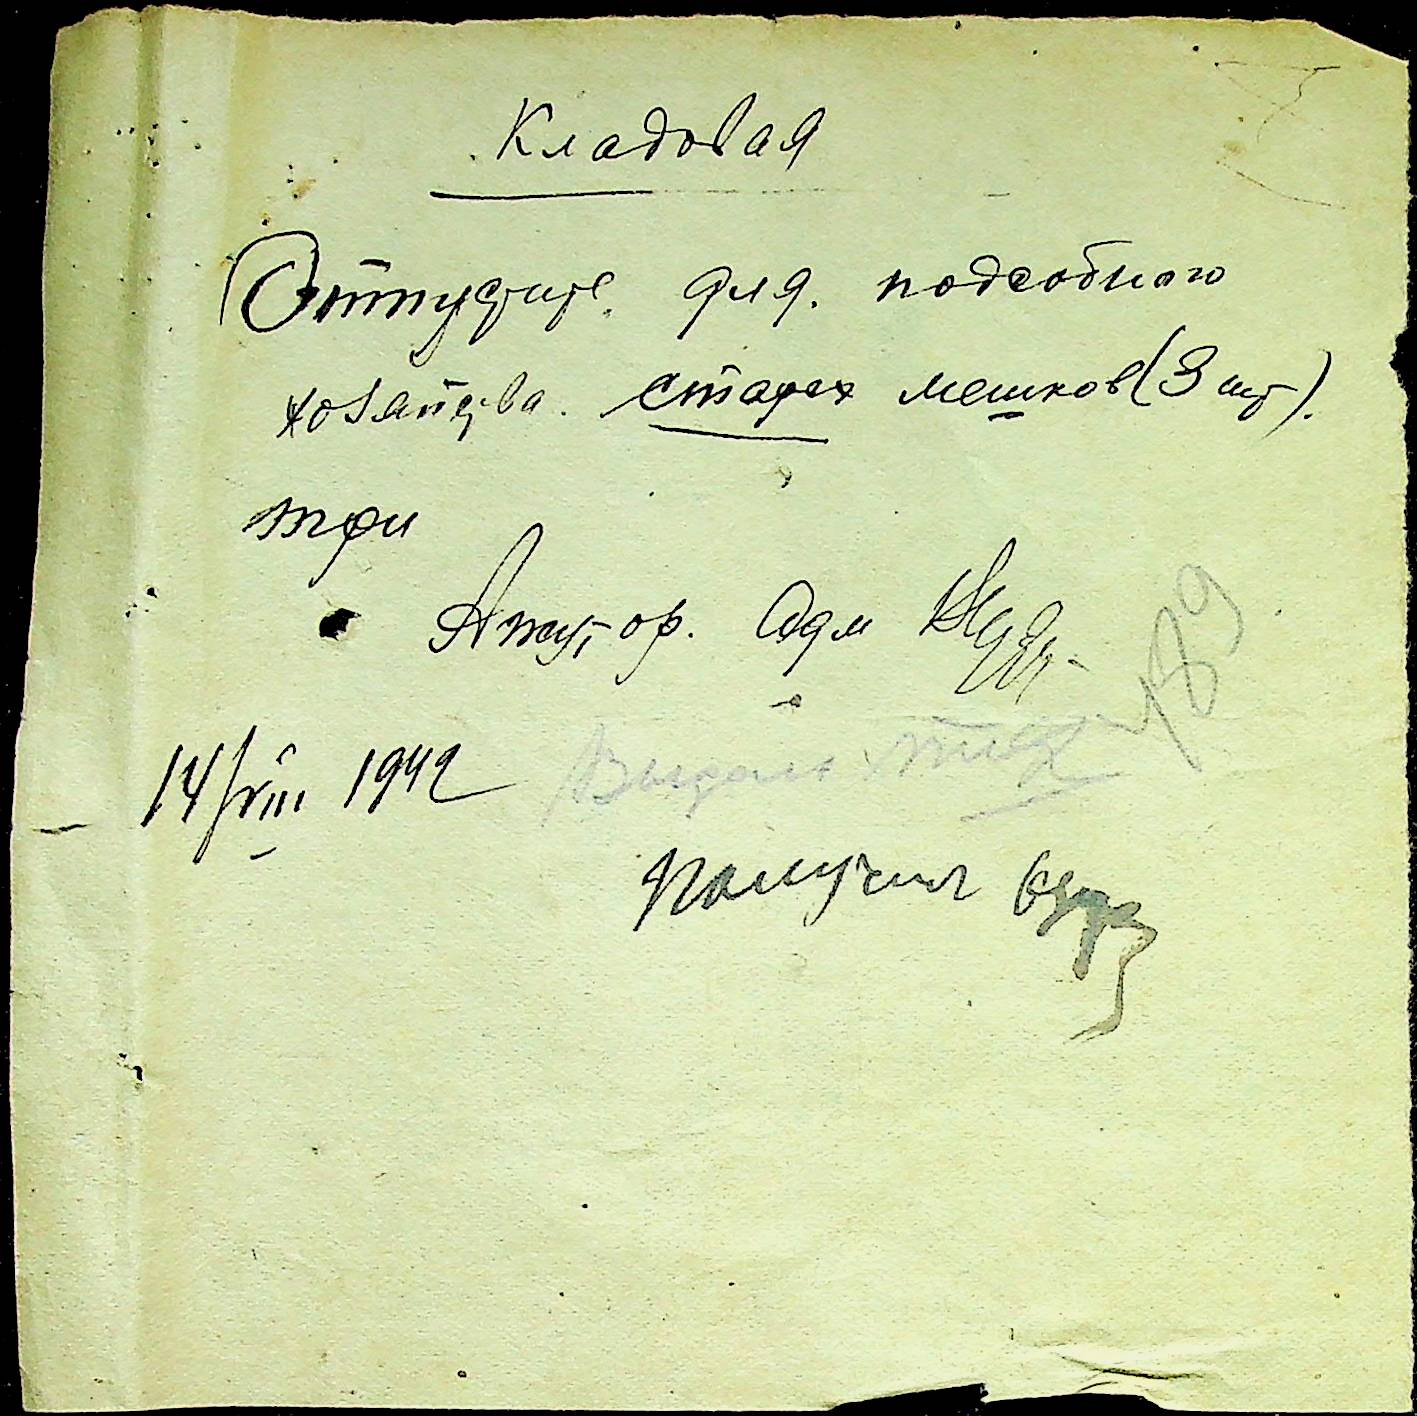 Кладовая
Отпустите для подсобного
хозяйства. старых мешков (3 шт).
три
Адм
189
14/VIII 1942
Выдал
Получил